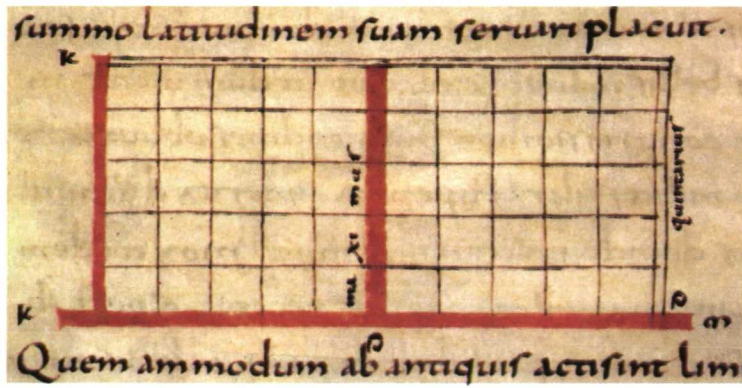 summo latitudinem suam seruari placuit.
k
maximus
quintarius
k
D
m
D
Quem ammodum ab antiquis acti sint lim